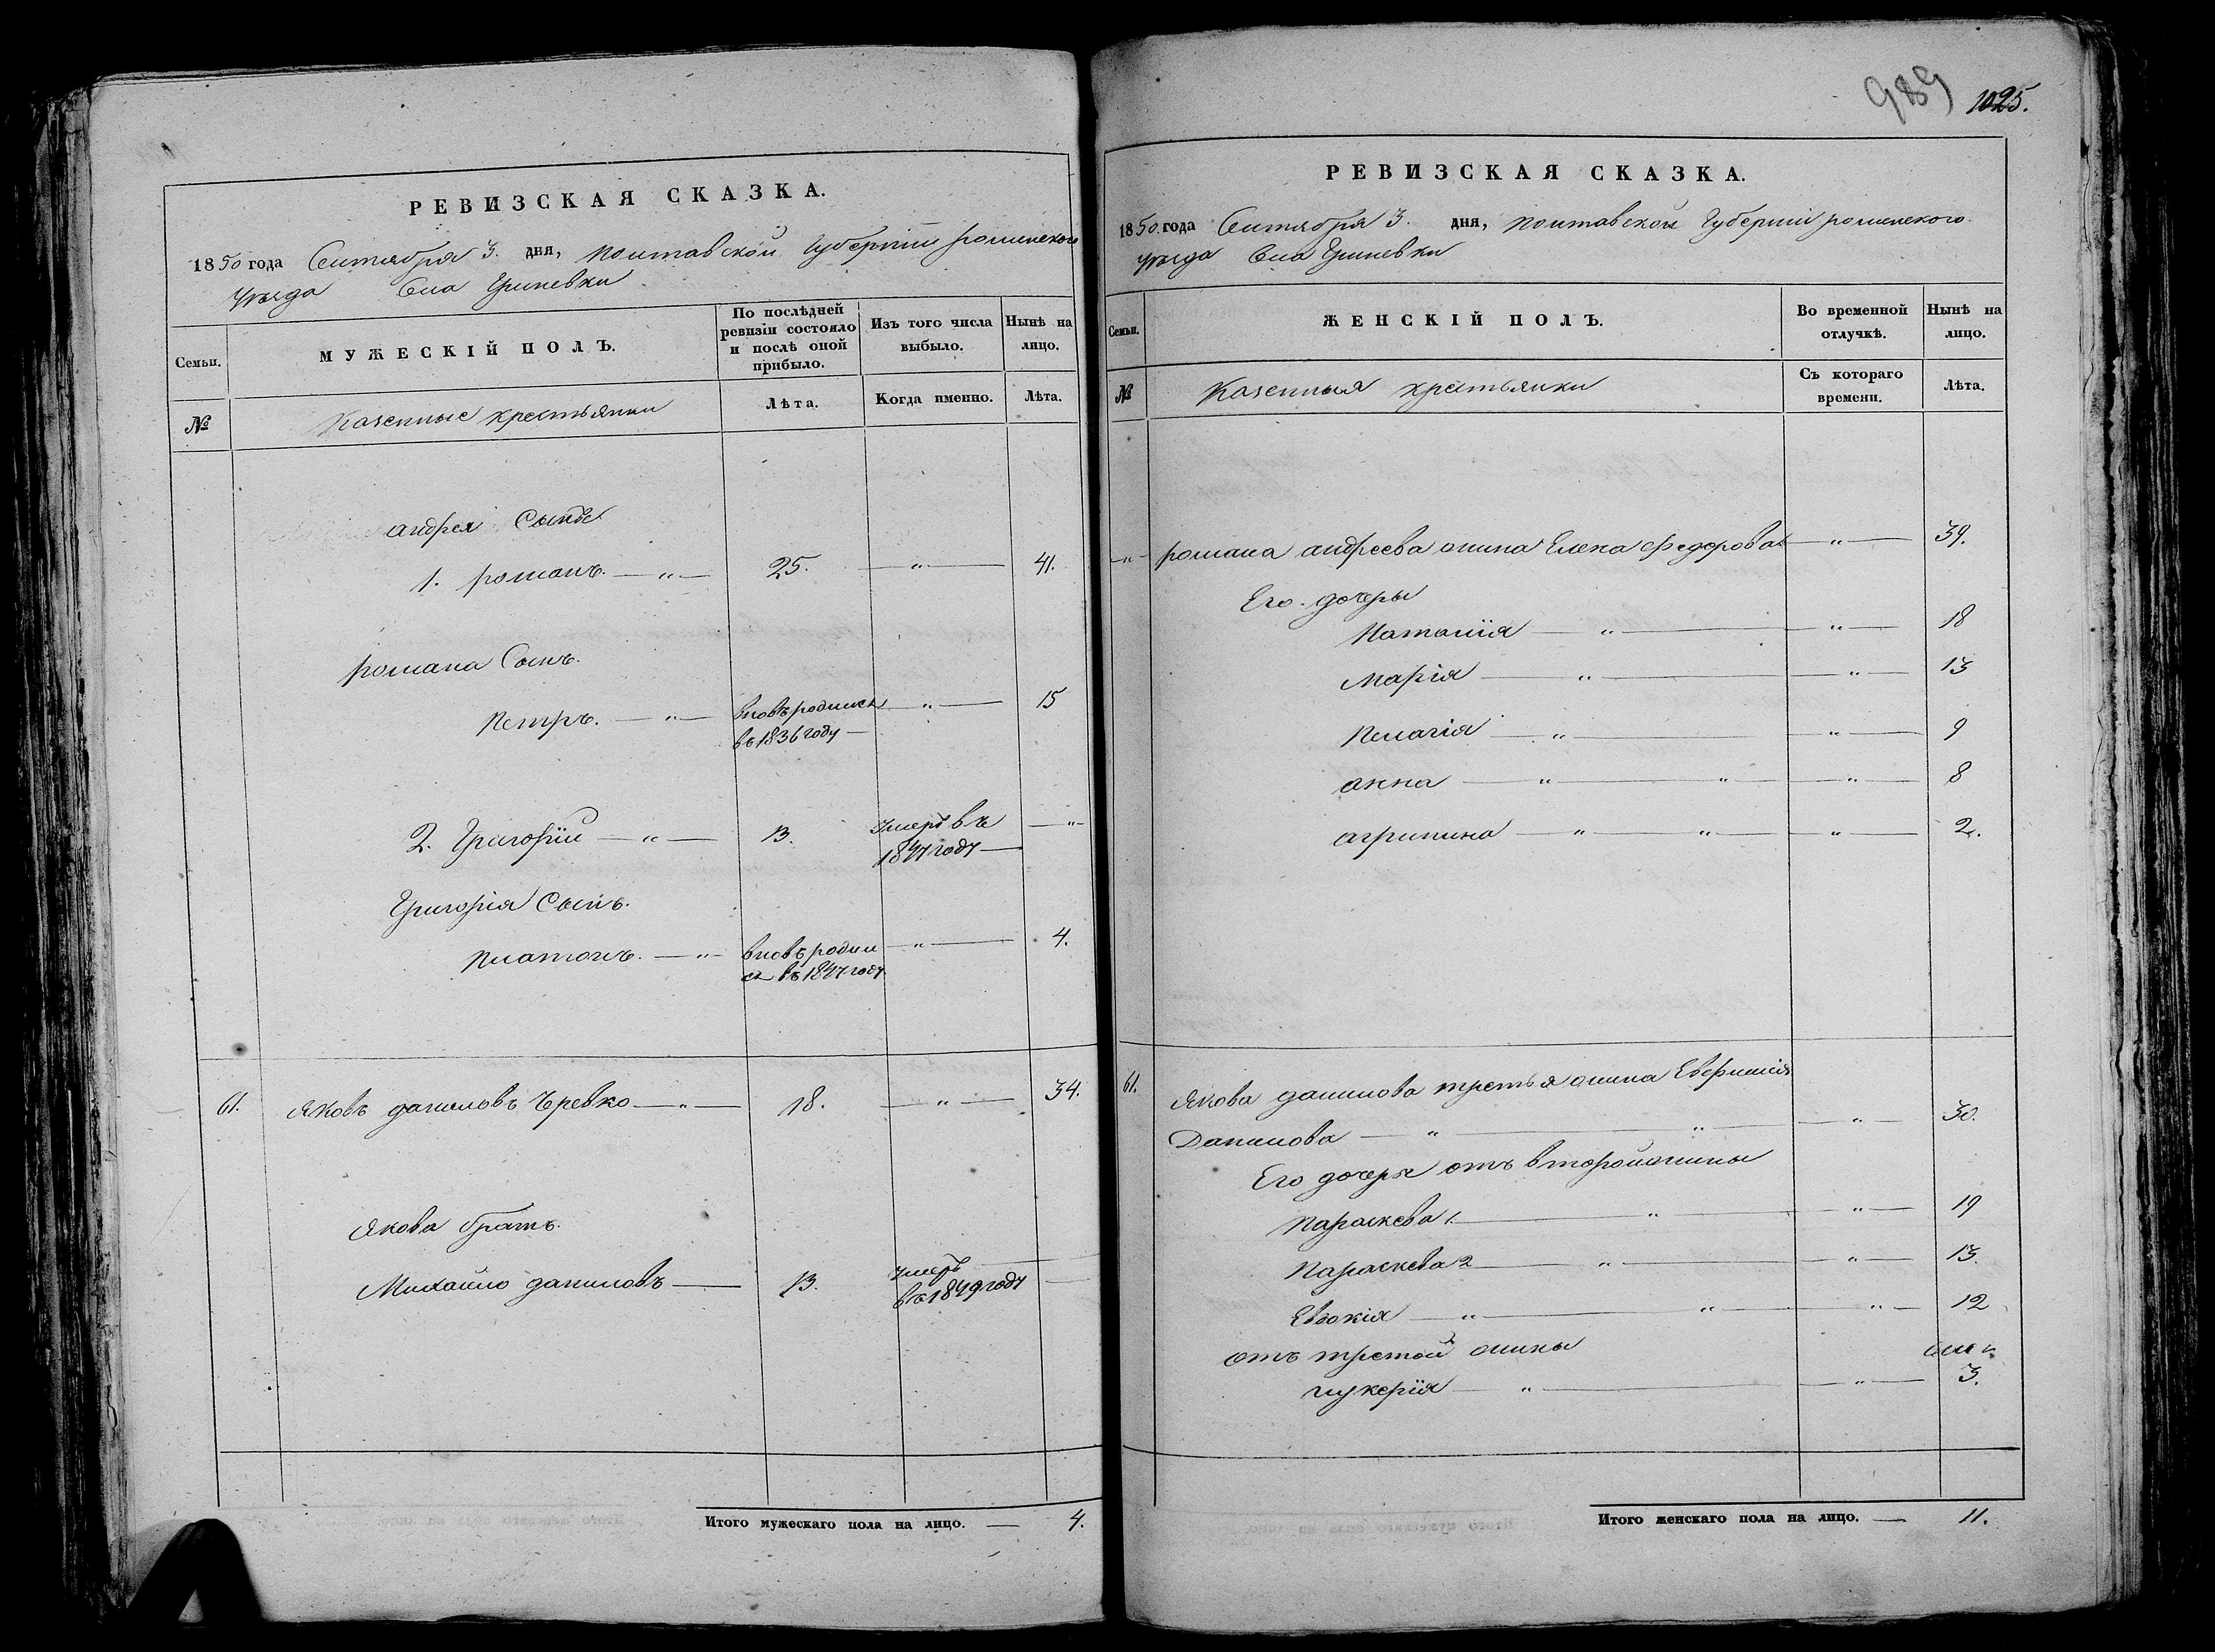 РЕВИЗСКАЯ СКАЗКА.
1850 года Сентября 3. дня, полтавской Губерніи роменского
уѣзда Села Гриневки
Семьи.
МУЖЕСКІЙ ПОЛЪ.
По послѣдней ревизіи состояло и послѣ оной прибыло.
Изъ того числа выбыло.
Нынѣ на лицо.
№
Казенные крестьянки
Лѣта.
Когда именно.
Лѣта.
андрея Сыны
1. романъ. — „ — 25. — „ — 41.
романа Сынъ.
петръ. — „ — вновь родился — „ — 15
въ 1836 году —
2. Григорій — „ — 13. Умеръ въ — „ —
1847 году —
Григорія Сынъ.
платонъ. — „ — вновь родил — „ — 4.
ся въ 1847 году
61. Яковъ даниловъ Чревко — „ — 18. — „ — 34.
Якова братъ.
Михайло даниловъ — 13. Умеръ —
въ 1849 году
Итого мужескаго пола на лицо. — 4.
989 1025.
РЕВИЗСКАЯ СКАЗКА.
1850 года Сентября 3. дня, полтавской Губерніи роменского
уѣзда Села Гриневки
Семьи.
ЖЕНСКІЙ ПОЛЪ.
Во временной отлучкѣ.
Нынѣ на лицо.
№
Казенныя крестьянки
Съ котораго времени.
Лѣта.
— „ — романа андреева жина Елена Федорова — „ — 39.
Его дочеры
Наталія — „ — — „ — 18
Марія — „ — — „ — 13
Пелагія — „ — — „ — 9
анна — „ — „ — — „ — 8
агрипина — „ — „ — — „ — 2.
61. Якова данилова третья жина Евфимія
Данилова — „ — „ — — „ — 30.
Его дочеры отъ второй жины
Параскева 1. — „ — — „ — 19
Параскева 2 — „ — — „ — 13.
Евдокія — „ — „ — — „ — 12
отъ третой жины
глукерія — „ — — „ — 3.
Итого женскаго пола на лицо. — 11.